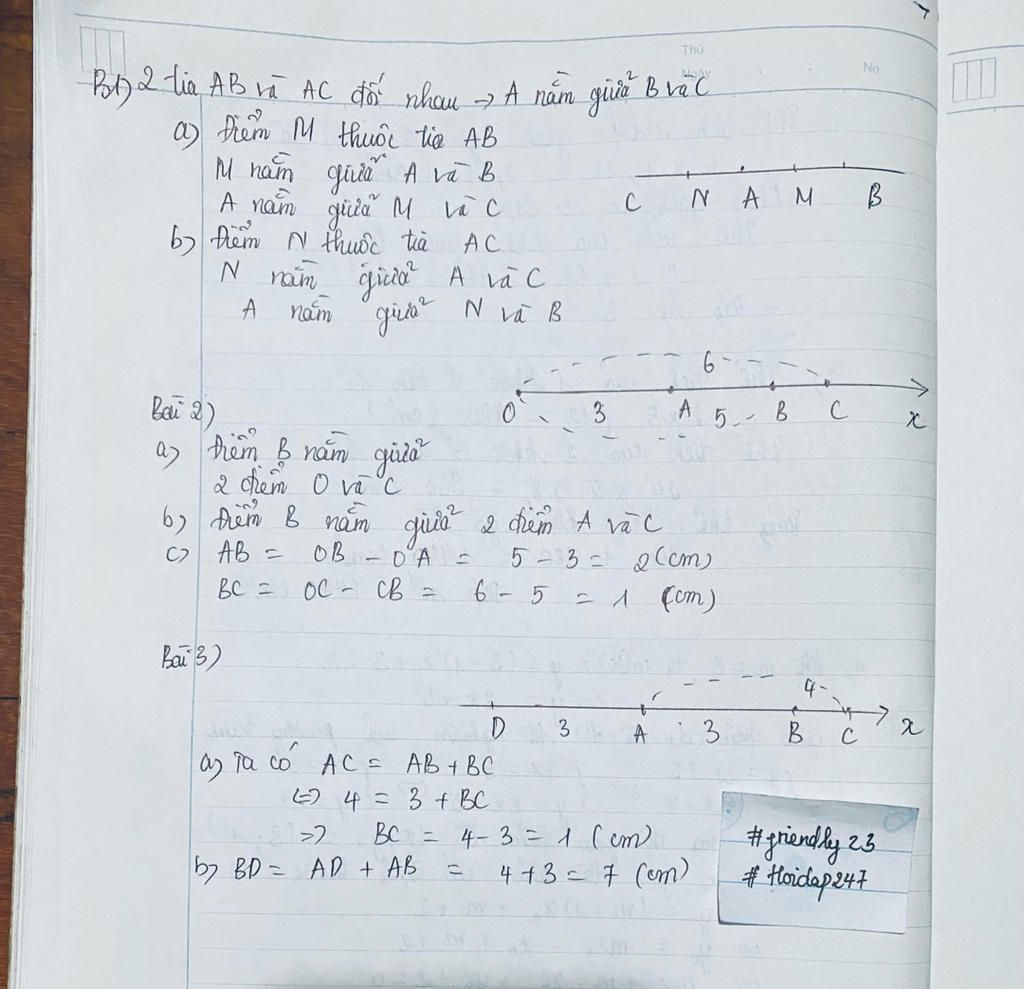 Thứ
Ngày
No
B1) 2 tia AB và AC đối nhau → A nằm giữa B và C
a) Điểm M thuộc tia AB
M nằm giữa A và B
A nằm giữa M và C
C N A M B
b) Điểm N thuộc tia AC
N nằm giữa A và C
A nằm giữa N và B
6
O 3 A 5 B C x
Bài 2)
a) Điểm B nằm giữa
2 điểm O và C
b) Điểm B nằm giữa 2 điểm A và C
c) AB = OB - OA = 5 - 3 = 2 (cm)
BC = OC - CB = 6 - 5 = 1 (cm)
Bài 3)
4
D 3 A 3 B C x
a) Ta có AC = AB + BC
<=> 4 = 3 + BC
=> BC = 4 - 3 = 1 (cm)
b) BD = AD + AB = 4 + 3 = 7 (cm)
#friendly23
#Hoidap247